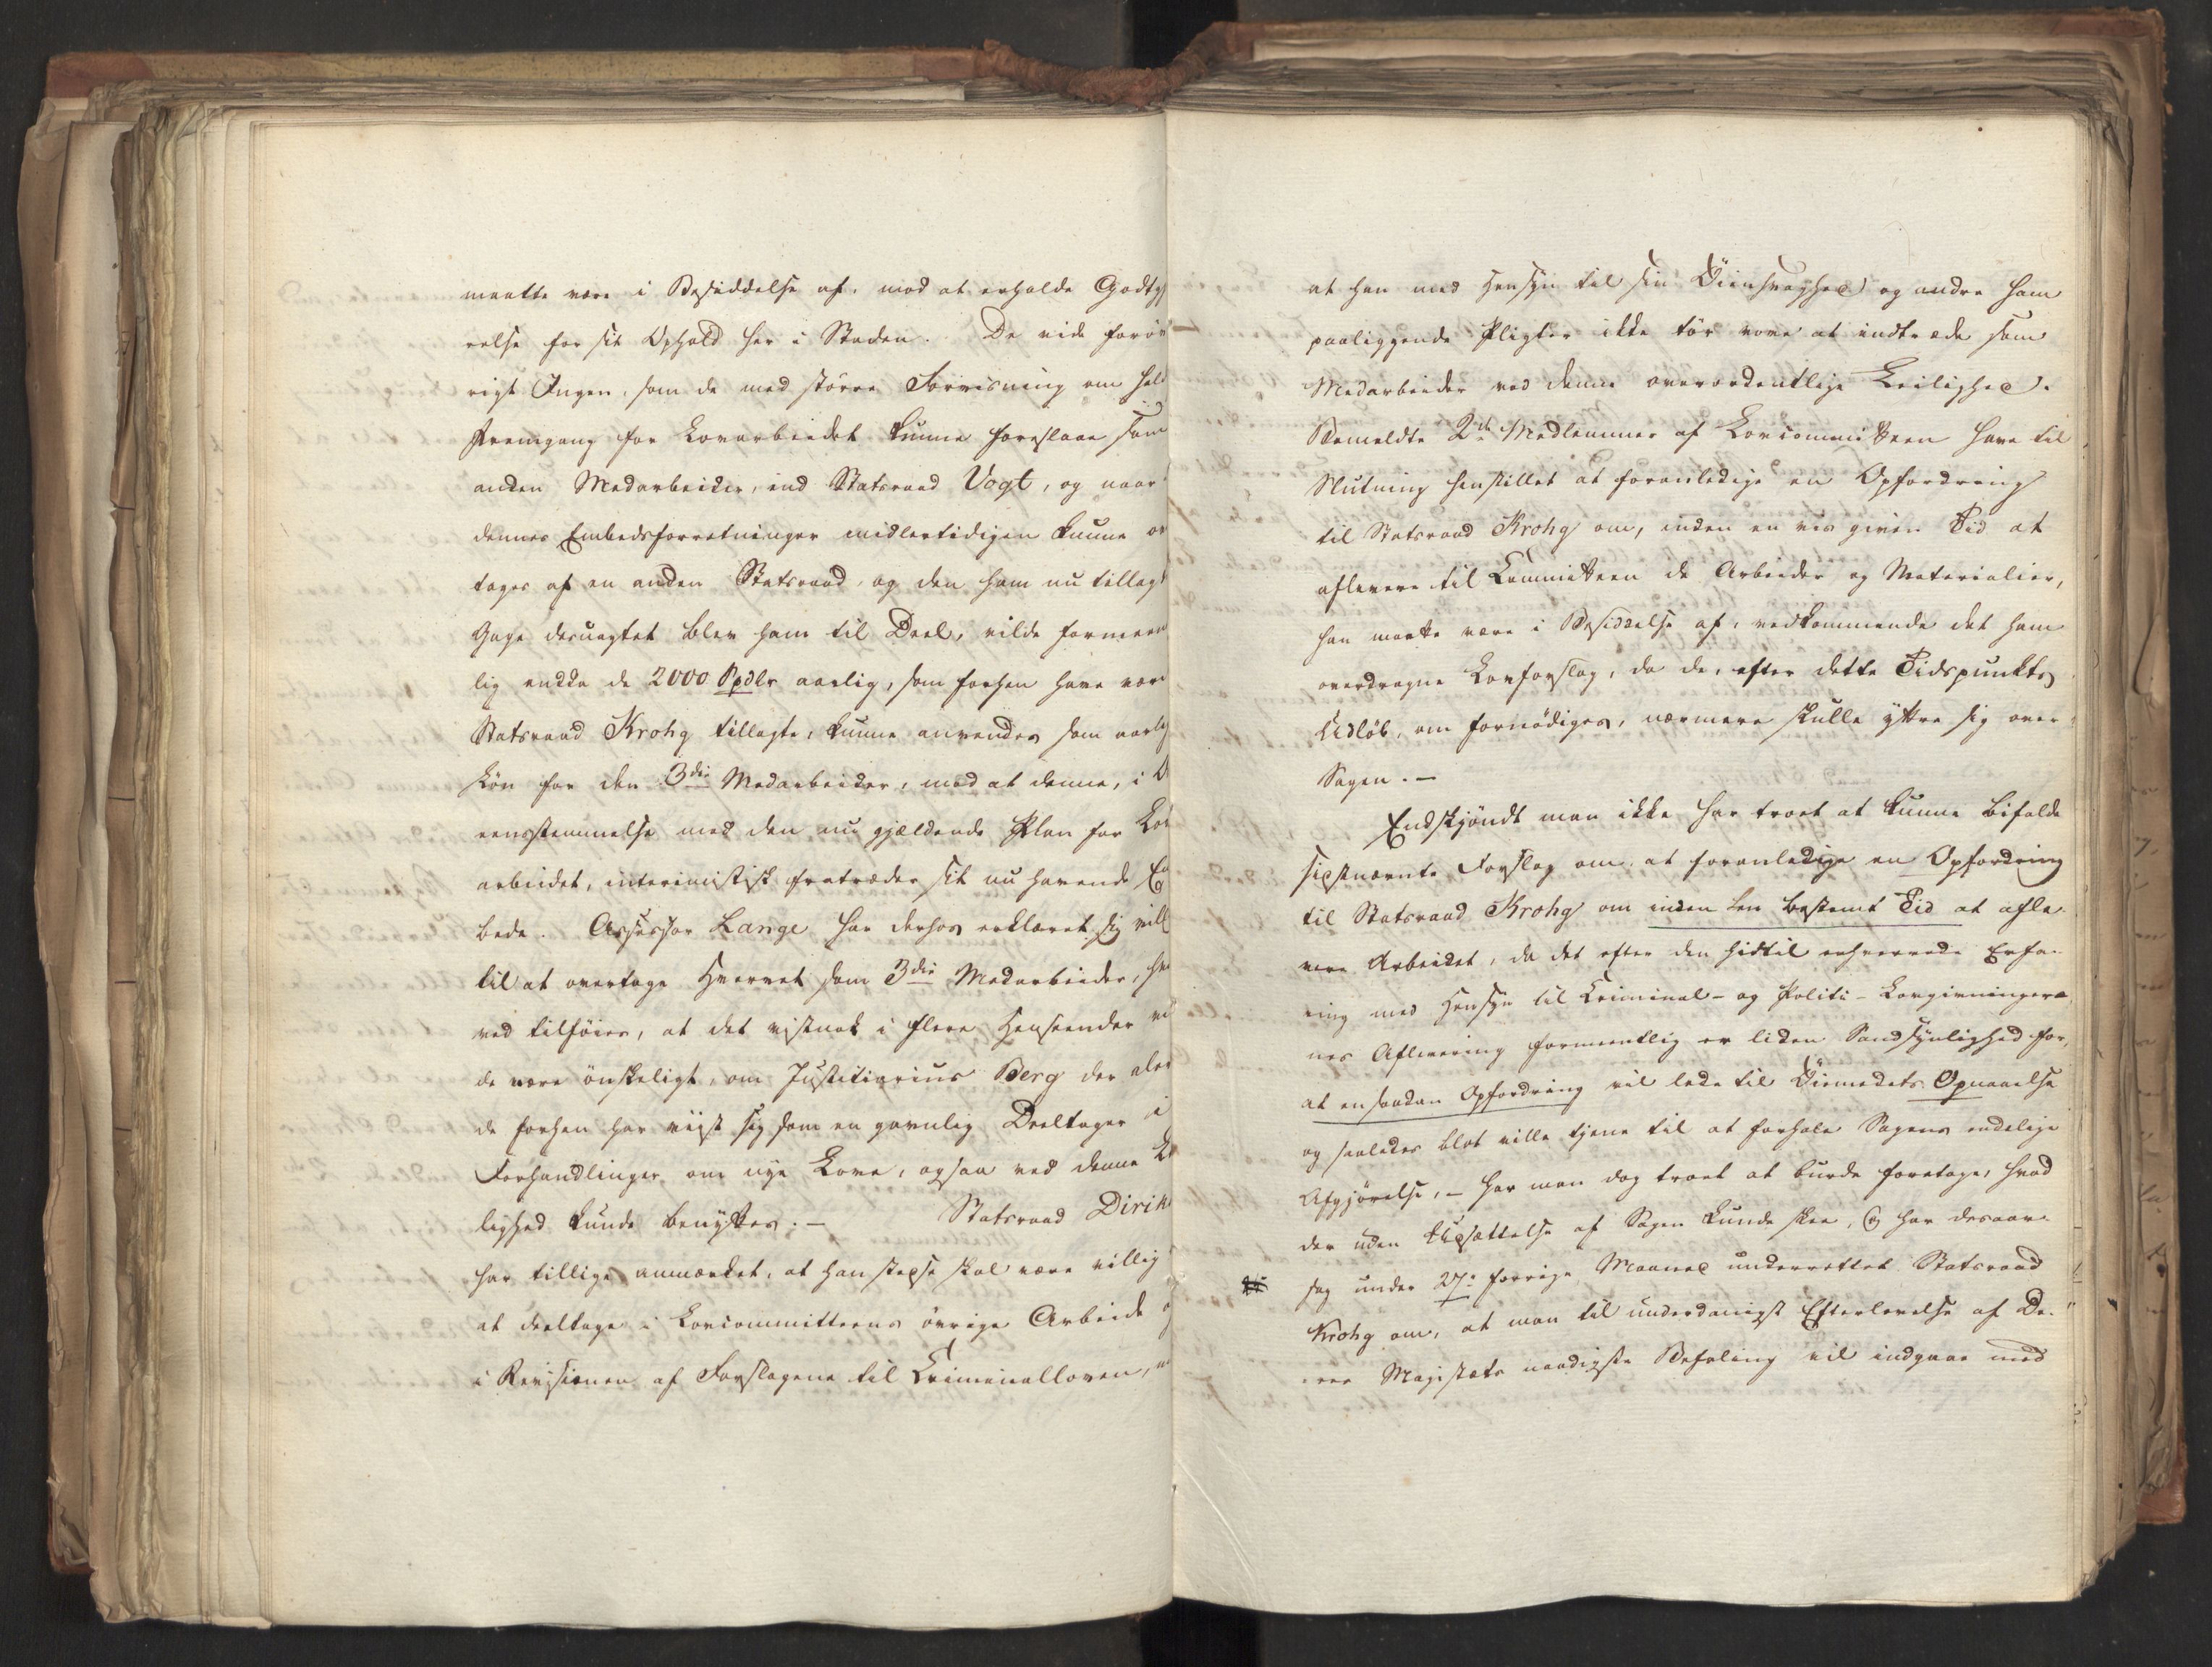 maatte være i Besiddelse af, mod at erholde Godtgj
relse for sit Ophold her i Staden. De vide forøv
rigt Ingen, som de med større Forvisning om held
Fremgang for Lovarbeidet kunne foreslaae som
anden Medarbeider, end Statsraad Vogt, og naar
dennes Embedsforretninger midlertidigen kunne ov
tages af en anden Statsraad, og den ham nu tillagt
Gage desuagtet blev ham til Deel, vilde formeent
lig endda de 2000 Spdlr aarlig, som forhen have vær
Statsraad Krohg tillagte, kunne anvendes som aarlig
Løn for den 3die Medarbeider, mod at denne, i O
eensstemmelse med den nu gjældende Plan for Lov
arbeidet, interimistisk fratræder sit nu havende Em
bede. Assessor Lange har derhos erklæret sig vill
til at overtage Hvervet som 3die Medarbeider, hv
ved tilføies, at det vistnok i flere Henseender vil
de være ønskeligt, om Justitiarius Berg der aler
de forhen har viist sig som en gavnlig Deeltager i
Forhandlinger om nye Love, ogsaa ved denne Le
lighed kunde benyttes. — Statsraad Dirik
har tillige anmærket, at han stedse skal være villig
at deeltage i Lovcommitteens øvrige Arbeide o
i Revisionen af Forslagene til Criminalloven, m
at han med Hensyn til sin Øiensvaghed og andre ham
paaliggende Pligter ikke tør vove at indtræde som
Medarbeider ved denne overordentlige Leilighed.
Bemeldte 2de Medlemmer af Lovcommitteen have til
Slutning henstillet at foranledige en Opfordring
til Statsraad Krohg om, inden en vis given Tid at
aflevere til Committeen de Arbeider og Materialier,
han maatte være i Besiddelse af, vedkommende det ham
overdragne Lovforslag, da de, efter dette Tidspunkts
Udløb, om fornødiges, nærmere skulle yttre sig over
Sagen. —
Endskjøndt man ikke har troet at kunne bifalde
sidstnævnte Forslag om at foranledige en Opfordring
til Statsraad Krohg om inden en bestemt Tid at afle
vere Arbeidet, da det efter den hidtil erhvervede Erfa
ring med Hensyn til Criminal- og Politi-Lovgivninger
nes Aflevering formeentlig er liden Sandsynlighed for,
at en saadan Opfordring vil lede til Øiemedets Opnaaelse
og saaledes blot ville tjene til at forhale Sagens endelige
Afgjørelse, — har man dog troet at burde foretage, hvad
der uden Udsættelse af Sagen kunde skee, og har desaar
sag under 27de forrige Maaned underrettet Statsraad
Krohg om, at man til underdanigst Efterlevelse af De
res Majestæts naadigste Befaling vil indgaae med